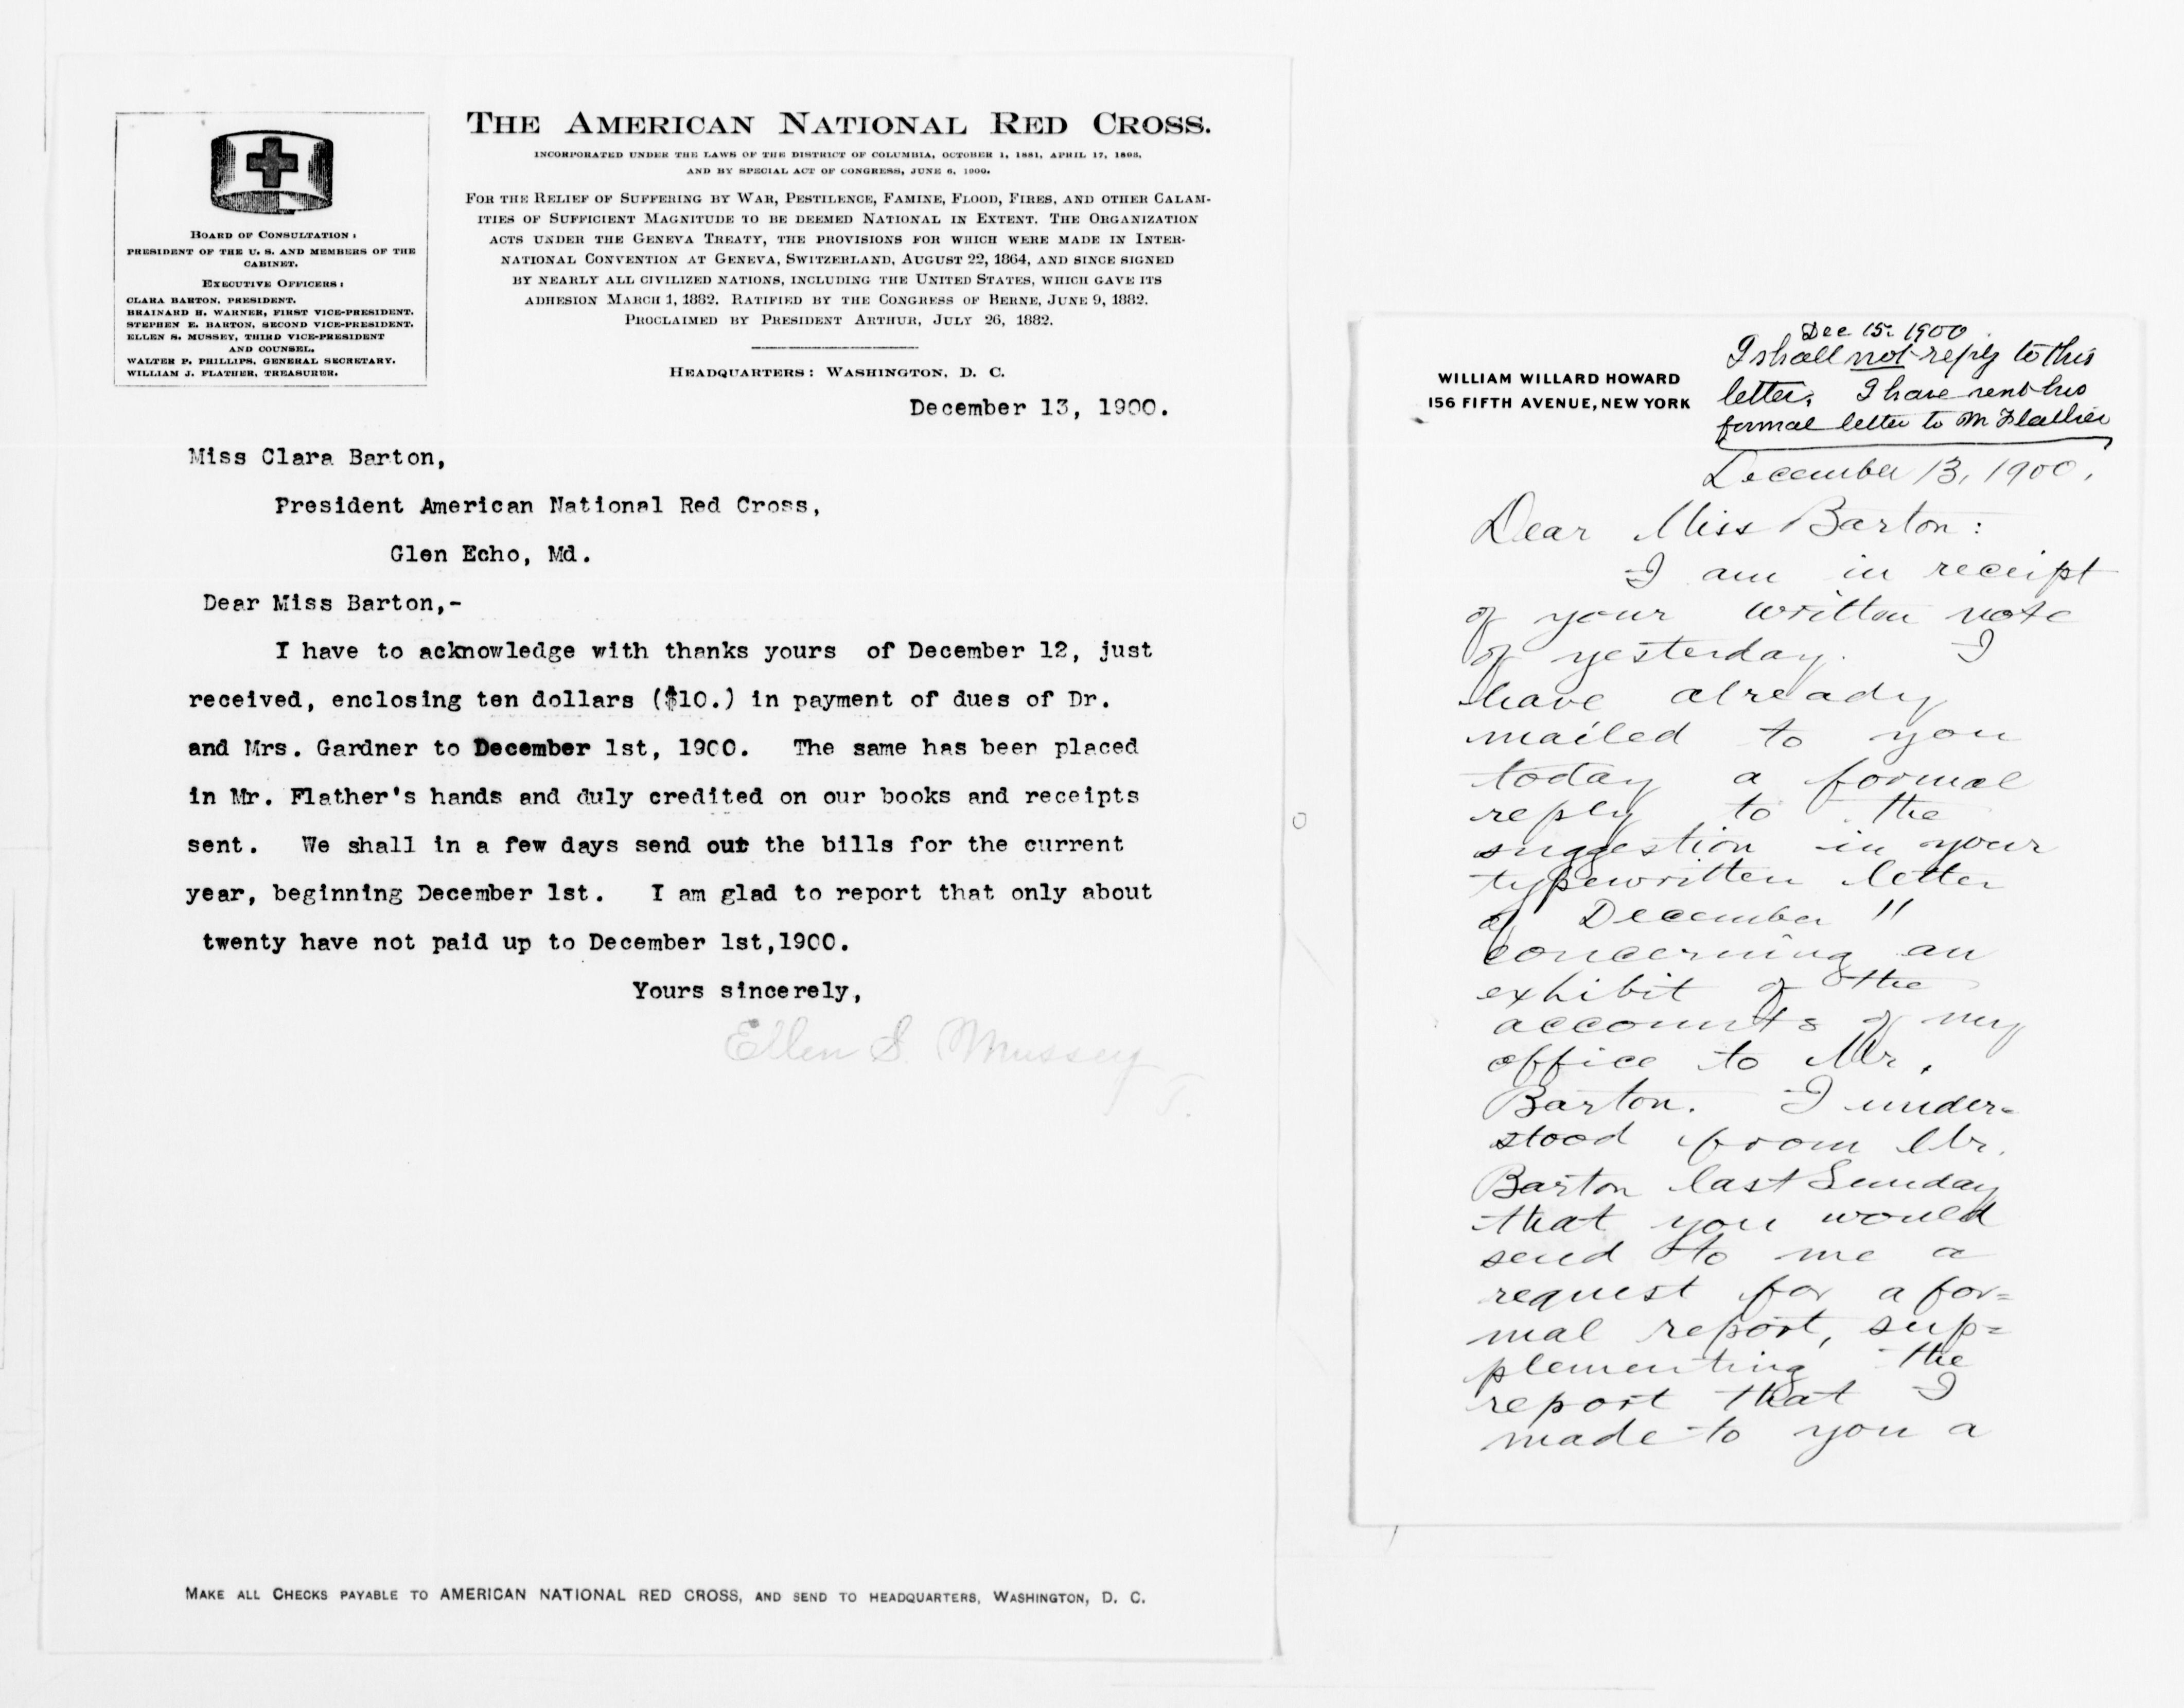 BOARD OF CONSULTATION:
PRESIDENT OF THE U. S. AND MEMBERS OF THE
CABINET.
EXECUTIVE OFFICERS:
CLARA BARTON, PRESIDENT.
BRAINARD H. WARNER, FIRST VICE-PRESIDENT.
STEPHEN E. BARTON, SECOND VICE-PRESIDENT.
ELLEN S. MUSSEY, THIRD VICE-PRESIDENT
AND COUNSEL.
WALTER P. PHILLIPS, GENERAL SECRETARY.
WILLIAM J. FLATHER, TREASURER.
THE AMERICAN NATIONAL RED CROSS.
INCORPORATED UNDER THE LAWS OF THE DISTRICT OF COLUMBIA, OCTOBER 1, 1881, APRIL 17, 1893,
AND BY SPECIAL ACT OF CONGRESS, JUNE 6, 1900.
FOR THE RELIEF OF SUFFERING BY WAR, PESTILENCE, FAMINE, FLOOD, FIRES, AND OTHER CALAM-
ITIES OF SUFFICIENT MAGNITUDE TO BE DEEMED NATIONAL IN EXTENT. THE ORGANIZATION
ACTS UNDER THE GENEVA TREATY, THE PROVISIONS FOR WHICH WERE MADE IN INTER-
NATIONAL CONVENTION AT GENEVA, SWITZERLAND, AUGUST 22, 1864, AND SINCE SIGNED
BY NEARLY ALL CIVILIZED NATIONS, INCLUDING THE UNITED STATES, WHICH GAVE ITS
ADHESION MARCH 1, 1882. RATIFIED BY THE CONGRESS OF BERNE, JUNE 9, 1882.
PROCLAIMED BY PRESIDENT ARTHUR, JULY 26, 1882.
HEADQUARTERS: WASHINGTON, D. C.
December 13, 1900.
Miss Clara Barton,
President American National Red Cross,
Glen Echo, Md.
Dear Miss Barton,-
I have to acknowledge with thanks yours of December 12, just
received, enclosing ten dollars ($10.) in payment of dues of Dr.
and Mrs. Gardner to December 1st, 1900. The same has been placed
in Mr. Flather's hands and duly credited on our books and receipts
sent. We shall in a few days send out the bills for the current
year, beginning December 1st. I am glad to report that only about
twenty have not paid up to December 1st,1900.
Yours sincerely,
Ellen S. Mussey
T.
MAKE ALL CHECKS PAYABLE TO AMERICAN NATIONAL RED CROSS, AND SEND TO HEADQUARTERS, WASHINGTON, D. C.
Dec 15. 1900
I shall not reply to this
letter. I have sent his
formal letter to Mr Flather
WILLIAM WILLARD HOWARD
156 FIFTH AVENUE, NEW YORK
December 13, 1900.
Dear Miss Barton:
I am in receipt
of your written note
of yesterday. I
have already
mailed to you
today a formal
reply to the
suggestion in your
typewritten letter
of December 11
concerning an
exhibit of the
accounts of my
office to Mr.
Barton. I under=
stood from Mr.
Barton last Sunday
that you would
send to me a
request for a for=
mal report, sup=
plementing the
report that I
made to you a